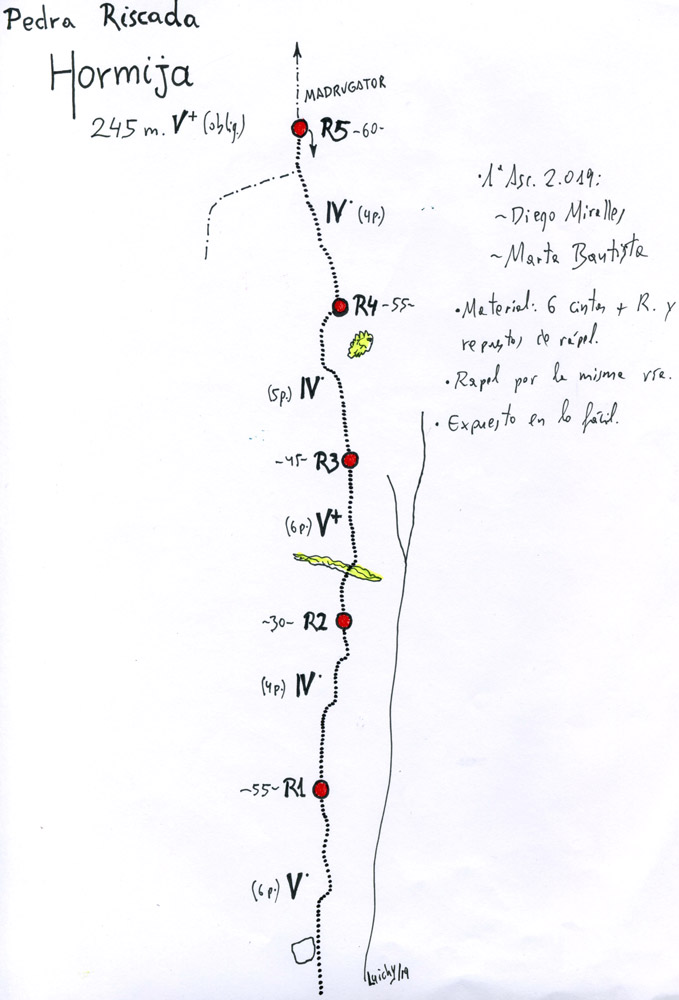 Pedra Riscada
Hormija
245 m. V+ (oblig.)
MADRUGATOR
R5 ~60~
IV· (4p.)
·1ª Asc. 2.019:
~Diego Miralles
~Marta Bautista
·Material: 6 cintas + R. y
repuestos de rápel.
·Rapel por la misma vía.
·Expuesto en lo fácil.
R4 ~55~
(5p.) IV·
~45~ R3
(6p.) V+
~30~ R2
(4p.) IV·
~55~ R1
(6p.) V·
Luichy/19